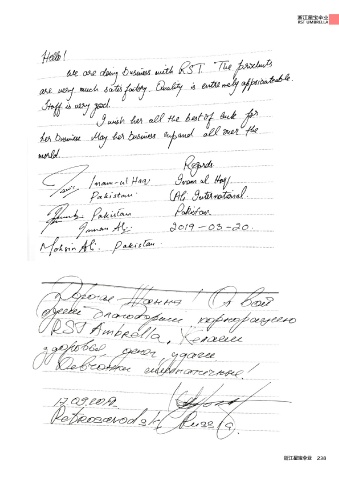 浙江星宝伞业
RST UMBRELLA
Hello!
we are doing business with RST. The products
are very much satisfactory. Quality is extremely
Staff is very good.
I wish her all the best of luck for
her business. May her business expand all over the
world.
Regards
Inam-ul Haq Inam ul Haq
Pakistan. Ali International.
Pakistan Pakistan
2019-03-20.
Mohsin Ali. Pakistan.
Дорогая Жанна!
RST Ambrella, Желаем
здоровья, денег, удачи
Девчонки симпатичные!
12.03.2019
Petrozavodsk
浙江星宝伞业 238